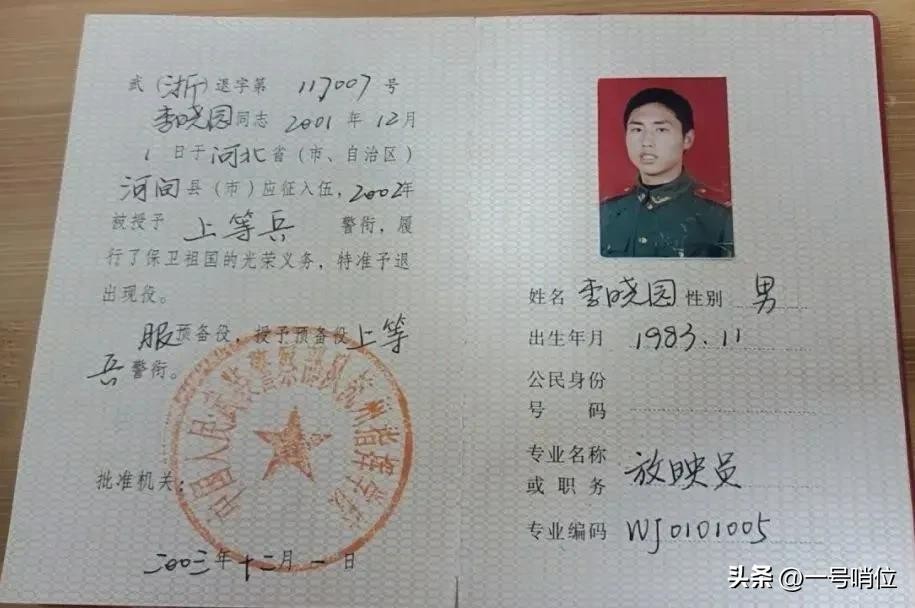 武（浙）退字第 117007 号
李晓园同志 2001 年 12 月
1 日于河北省（市、自治区）
河间县（市）应征入伍，2002年
被授予 上等兵 警衔，履
行了保卫祖国的光荣义务，特准予退
出现役。
服预备役，授予预备役上等
兵警衔。
中国人民武装警察部队杭州指挥学院
批准机关：
二〇〇三年十二月一日
姓名 李晓园 性别 男
出生年月 1983.11
公民身份
号 码
专业名称
或职务 放映员
专业编码 WJ0101005
头条 @一号哨位